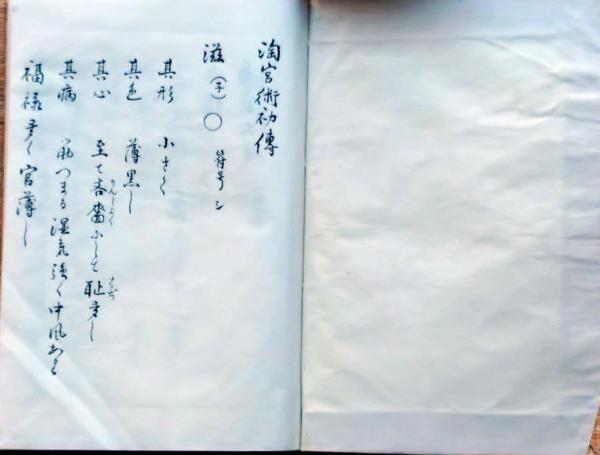 淘宮術初傳
滋（子）〇　符号シ
其形　小さく
其色　薄黒し
其心　至て吝嗇にして恥多し
其病　筋つまる湿気強く中風あり
福禄多く官薄し